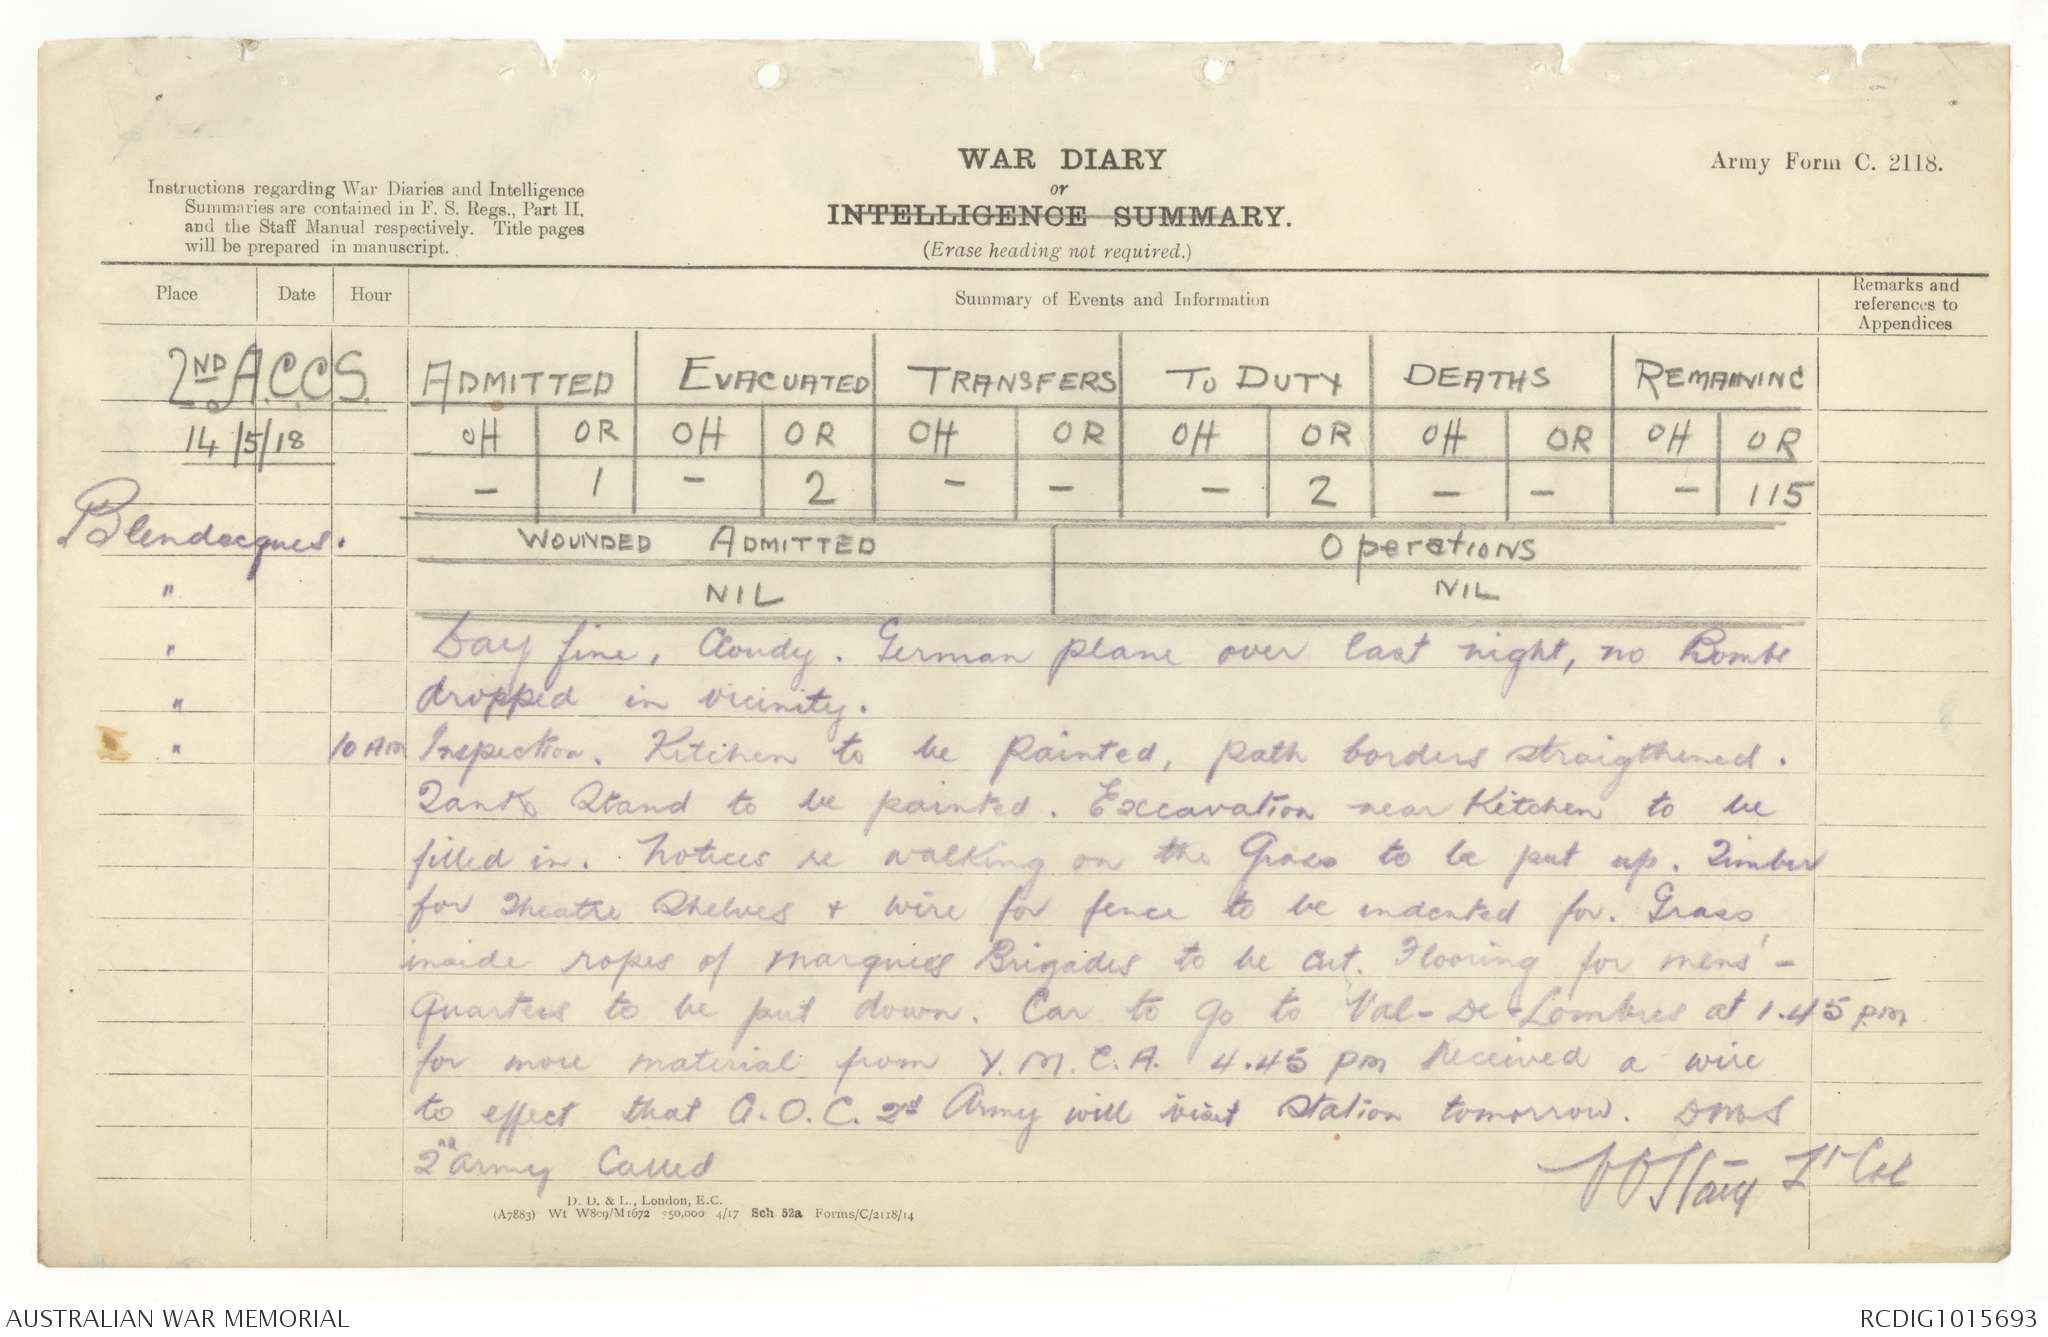 WAR DIARY
or
INTELLIGENCE SUMMARY.
(Erase heading not required.)
Army Form C. 2118.
Instructions regarding War Diaries and Intelligence
Summaries are contained in F. S. Regs., Part II.
and the Staff Manual respectively. Title pages
will be prepared in manuscript.
Place Date Hour Summary of Events and Information Remarks and references to Appendices
2ND A.C.C.S. ADMITTED EVACUATED TRANSFERS TO DUTY DEATHS REMAINING
14/5/18 OH OR OH OR OH OR OH OR OH OR OH OR
- 1 - 2 - - - 2 - - - 115
Blendecques. WOUNDED ADMITTED Operations
" NIL NIL
" Day fine, Cloudy. German plane over last night, no Bombs
" dropped in vicinity.
" 10 AM Inspection. Kitchen to be painted, path borders straigthened.
Tanks Stand to be painted. Excavation near Kitchen to be
filled in. Notices re walking on the Grass to be put up. Timber
for Theatre Shelves + wire for fence to be indented for. Grass
inside ropes of marquees Brigades to be cut. Flooring for mens' -
Quarters to be put down. Car to go to Val-De-Lombres at 1.45 pm
for more material from Y.M.C.A. 4.45 pm Received a wire
to effect that G.O.C. 2nd Army will visit station tomorrow. DMS
2nd Army Called
Lt Col
D. D. & L., London, E.C.
(A7883) Wt W809/M1672 350,000 4/17 Sch 52a Forms/C/2118/14
AUSTRALIAN WAR MEMORIAL
RCDIG1015693